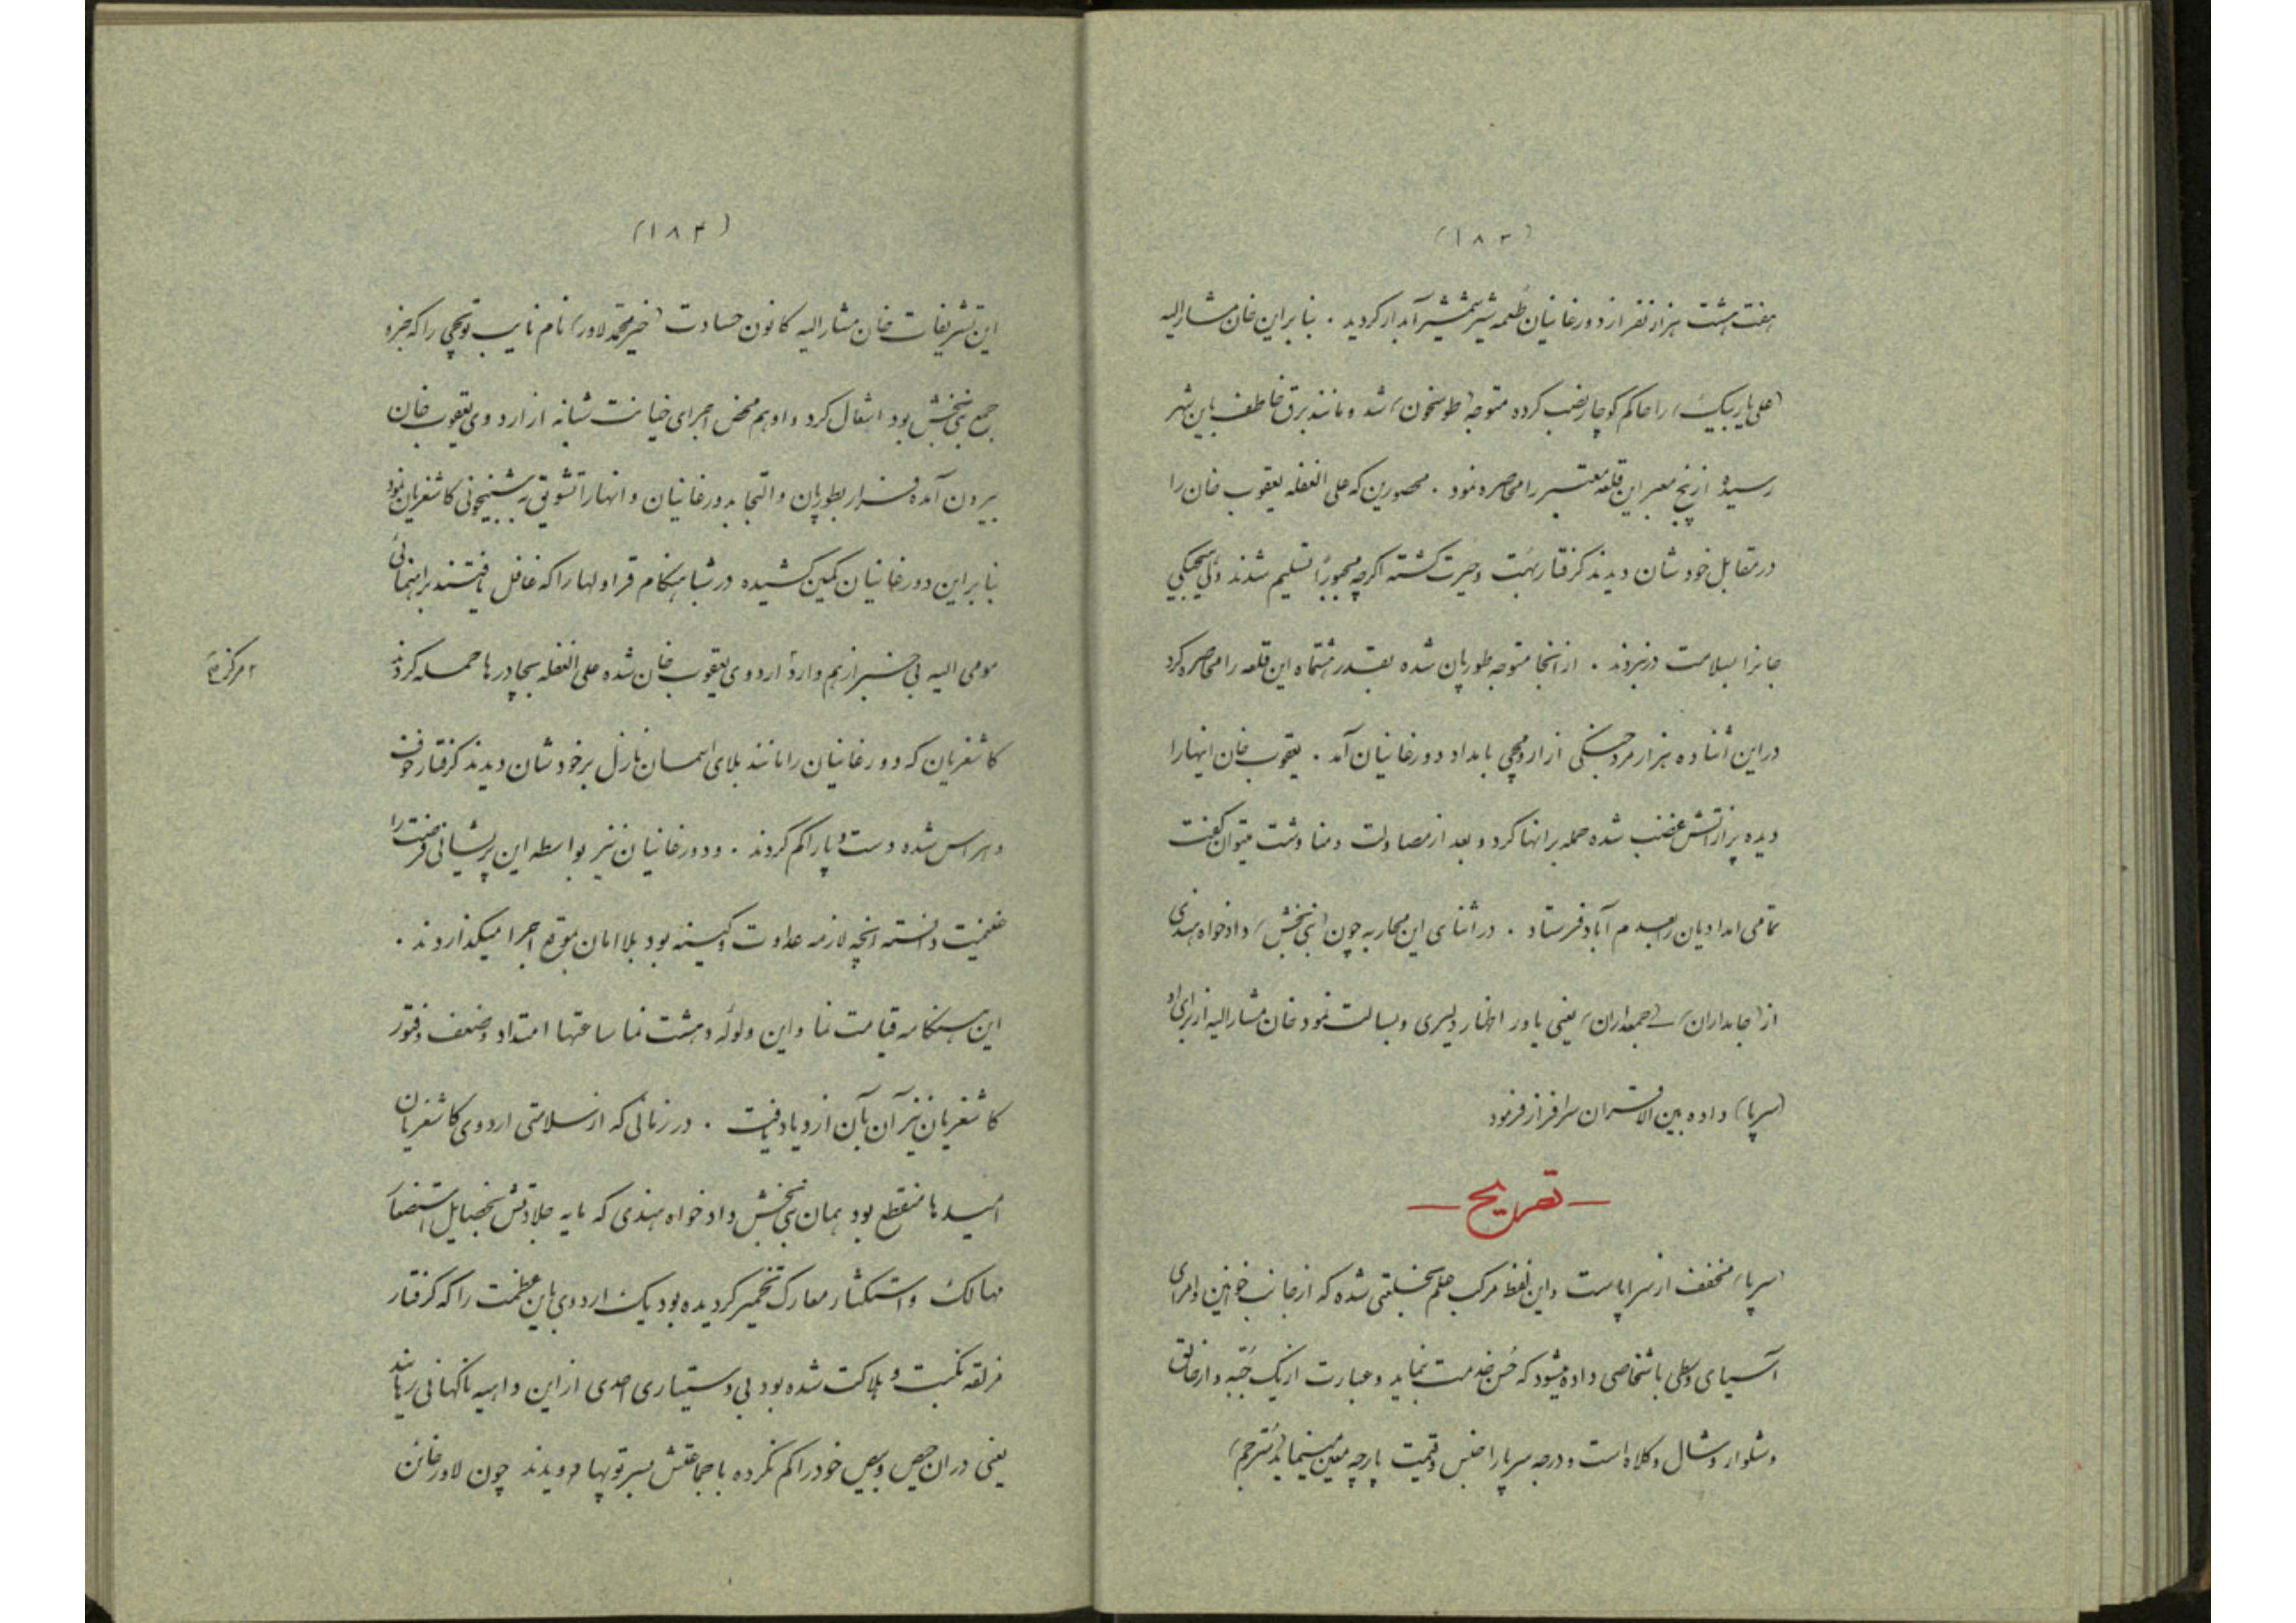 (۱۸۳)
هفت هشت هزار نفر از دورغانیان طعمه شیر شمشیر آبدار کردید . بنابراین خان مشارالیه
(علی یار بیک) را حاکم کوچار نصب کرده متوجه (طوسخون) شد و مانند برق خاطف باین شهر
رسیده از پنج معبر این قلعه معتبر را محاصره نمود . محصورین که علی الغفله یعقوب خان را
در مقابل خودشان دیدند کرفتار بهت و حیرت کشته اکرچه مجبوراً تسلیم شدند ولی هیچکی
جانرا بسلامت درنبردند . از انجا متوجه طورپان شده بقدر هشتماه این قلعه را محاصره کرد
در این اثنا ده هزار مرد جنکی از ارومچی بامداد دورغانیان آمد . یعقوب خان اینهارا
دیده پر از آتش غضب شده حمله برانها کرد و بعد از مصاولت و مناوشت میتوان کفت
تمامی امدادیان را بعدم آباد فرستاد . در اثنای این محاربه چون (نبی بخش) دادخواه هندی
از (جابداران) – (جمعداران) یعنی یاور اظهار دلیری و بسالت نمود خان مشارالیه از برای او
(سرپا) داده بین الاقران سرافراز فرمود
— تصریح —
(سرپا) مخفف از سراپاست و این لفظ مرکب علم بخلعتی شده که از جانب خوانین و امرای
آسیای وسطی باشخاصی داده میشود که حُسن خدمت بنماید و عبارت از یک جُبّه و ارخالق
و شلوار و شال و کلاه است و درجه سرپا را جنس و قیمت پارچه معین مینماید (مترجم)
(۱۸۴)
این تشریفات خان مشارالیه کانون حسادت (خیر محمد لاور) نام نایب توپچی را که جزء
جمع نبی بخش بود اشعال کرد و او هم محض اجرای خیانت شبانه از اردوی یعقوب خان
بیرون آمده فرار بطورپان و التجا بدورغانیان و انهارا تشویق به شبیخونی کاشغریان نمود
بنابراین دورغانیان کمین کشیده در شباهنکام قراولها را که غافل یافتند براهنمائی
مومی الیه بی خبر از هم وارد اردوی یعقوب خان شده علی الغفله بچادرها حمله کردند
کاشغریان که دورغانیان را مانند بلای اسمان نازل بر خودشان دیدند کرفتار خوف
و هراس شده دست و پا را کم کردند . و دورغانیان نیز بواسطه این پریشانی فرصت را
غنیمت دانسته انچه لازمه عداوت و کینه بود بلا امان بموقع اجرا میکذاردند .
این هنکامه قیامت نما و این ولوله دهشت نما ساعتها امتداد و ضعف و فتور
کاشغریان نیز آن بآن ازدیاد یافت . در زمانی که از سلامتی اردوی کاشغریان
امیدها منقطع بود همان نبی بخش دادخواه هندی که مایه جلادتش بخصایل استصغار
مهالک و استکثار معارک تخمیر کردیده بود یک اردوی باین عظمت را که کرفتار
مزلقه نکبت و هلاکت شده بود بی دستیاری احدی از این داهیه ناکهانی رهانید
یعنی دران حیص و بیص خود را کم نکرده با جماعتش بسر توپها دویدند چون لاور خائن